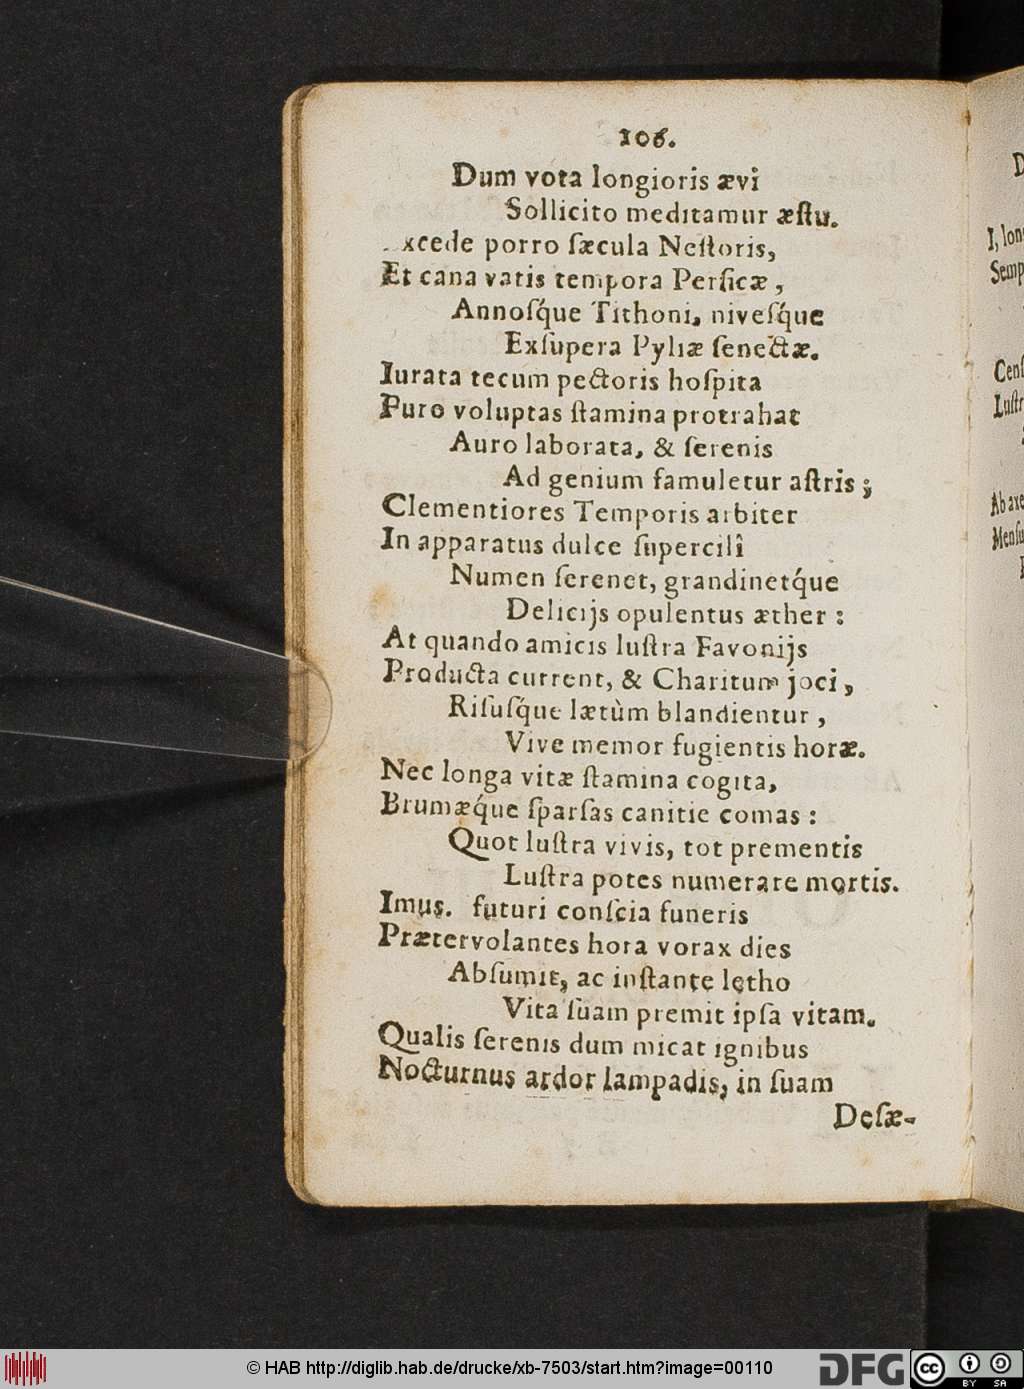 106.
Dum vota longioris ævî
Sollicito meditamur æſtu.
xcede porro ſæcula Neſtoris,
Et cana vatis tempora Perſicæ,
Annoſq́ue Tithoni, niveſq́ue
Exſupera Pyliæ ſenectæ.
Iurata tecum pectoris hoſpita
Puro voluptas ſtamina protrahat
Auro laborata, & ſerenis
Ad genium famuletur aſtris;
Clementiores Temporis arbiter
In apparatus dulce ſupercilî
Numen ſerenet, grandinetq́ue
Delicijs opulentus æther:
At quando amicis luſtra Favonijs
Producta current, & Charitum joci,
Riſuſq́ue lætùm blandientur,
Vive memor fugientis horæ.
Nec longa vitæ ſtamina cogita,
Brumæq́ue ſparſas canitie comas:
Quot luſtra vivis, tot prementis
Luſtra potes numerare mortis.
Imus. futuri conſcia funeris
Prætervolantes hora vorax dies
Abſumit, ac inſtante letho
Vita ſuam premit ipſa vitam.
Qualis ſerenis dum micat ignibus
Nocturnus ardor lampadis, in ſuam
Deſæ-
I, lon
Semp
Cenſ
Luſtr
Ab axe
Menſu
© HAB http://diglib.hab.de/drucke/xb-7503/start.htm?image=00110
DFG
cc BY SA